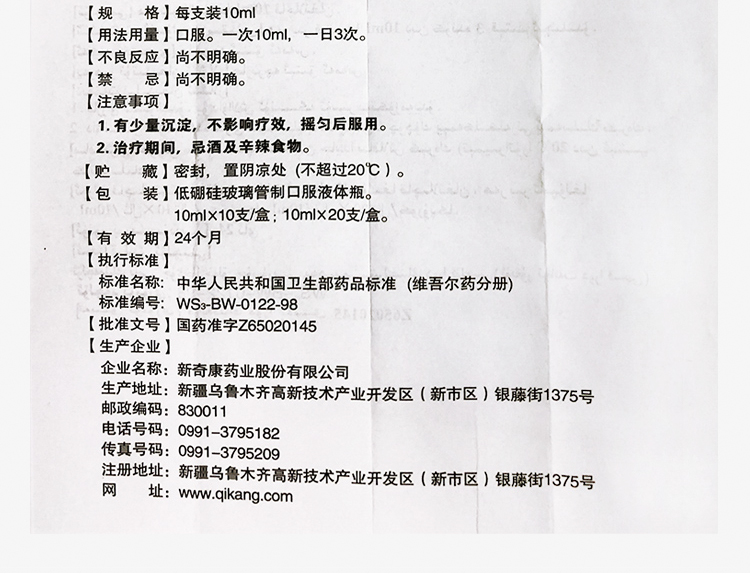 【规　　格】每支装10ml
【用法用量】口服。一次10ml，一日3次。
【不良反应】尚不明确。
【禁　　忌】尚不明确。
【注意事项】
1. 有少量沉淀，不影响疗效，摇匀后服用。
2. 治疗期间，忌酒及辛辣食物。
【贮　　藏】密封，置阴凉处（不超过20℃）。
【包　　装】低硼硅玻璃管制口服液体瓶。
10ml×10支/盒；10ml×20支/盒。
【有 效 期】24个月
【执行标准】
标准名称：中华人民共和国卫生部药品标准（维吾尔药分册）
标准编号：WS₃-BW-0122-98
【批准文号】国药准字Z65020145
【生产企业】
企业名称：新奇康药业股份有限公司
生产地址：新疆乌鲁木齐高新技术产业开发区（新市区）银藤街1375号
邮政编码：830011
电话号码：0991-3795182
传真号码：0991-3795209
注册地址：新疆乌鲁木齐高新技术产业开发区（新市区）银藤街1375号
网　　址：www.qikang.com